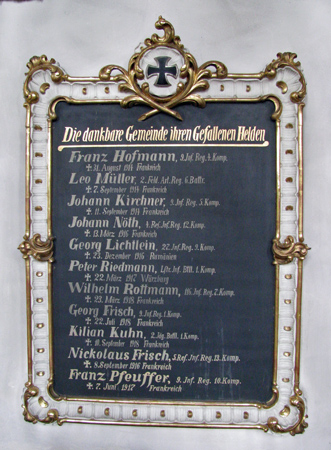 Die dankbare Gemeinde ihren Gefallenen Helden
Franz Hofmann, 9. Inf. Reg. 4. Komp.
✝ 31. August 1914 Frankreich
Leo Müller, 2. Feld Art. Reg. 6. Battr.
✝ 7. September 1914 Frankreich
Johann Kirchner, 9. Inf. Reg. 5. Komp.
✝ 11. September 1914 Frankreich
Johann Nöth, 4. Res. Inf. Reg. 12. Komp.
✝ 13. März 1916 Frankreich
Georg Lichtlein, 27. Inf. Reg. 9. Komp.
✝ 23. Dezember 1916 Rumänien
Peter Riedmann, Lds. Inf. Btll. 1. Komp.
✝ 22. März 1917 Würzburg
Wilhelm Rottmann, 116. Inf. Reg. 7. Komp.
✝ 23. März 1918 Frankreich
Georg Frisch, 9. Inf. Reg. 1. Komp.
✝ 22. Juli 1918 Frankreich
Kilian Kuhn, 2. Jäg. Battl. 1. Komp.
✝ 10. September 1918 Frankreich
Nickolaus Frisch, 5. Ref. Inf. Reg. 13. Komp.
✝ 8. September 1916 Frankreich
Franz Pfeuffer, 9. Inf. Reg. 10. Komp.
✝ 7. Juni 1917 Frankreich